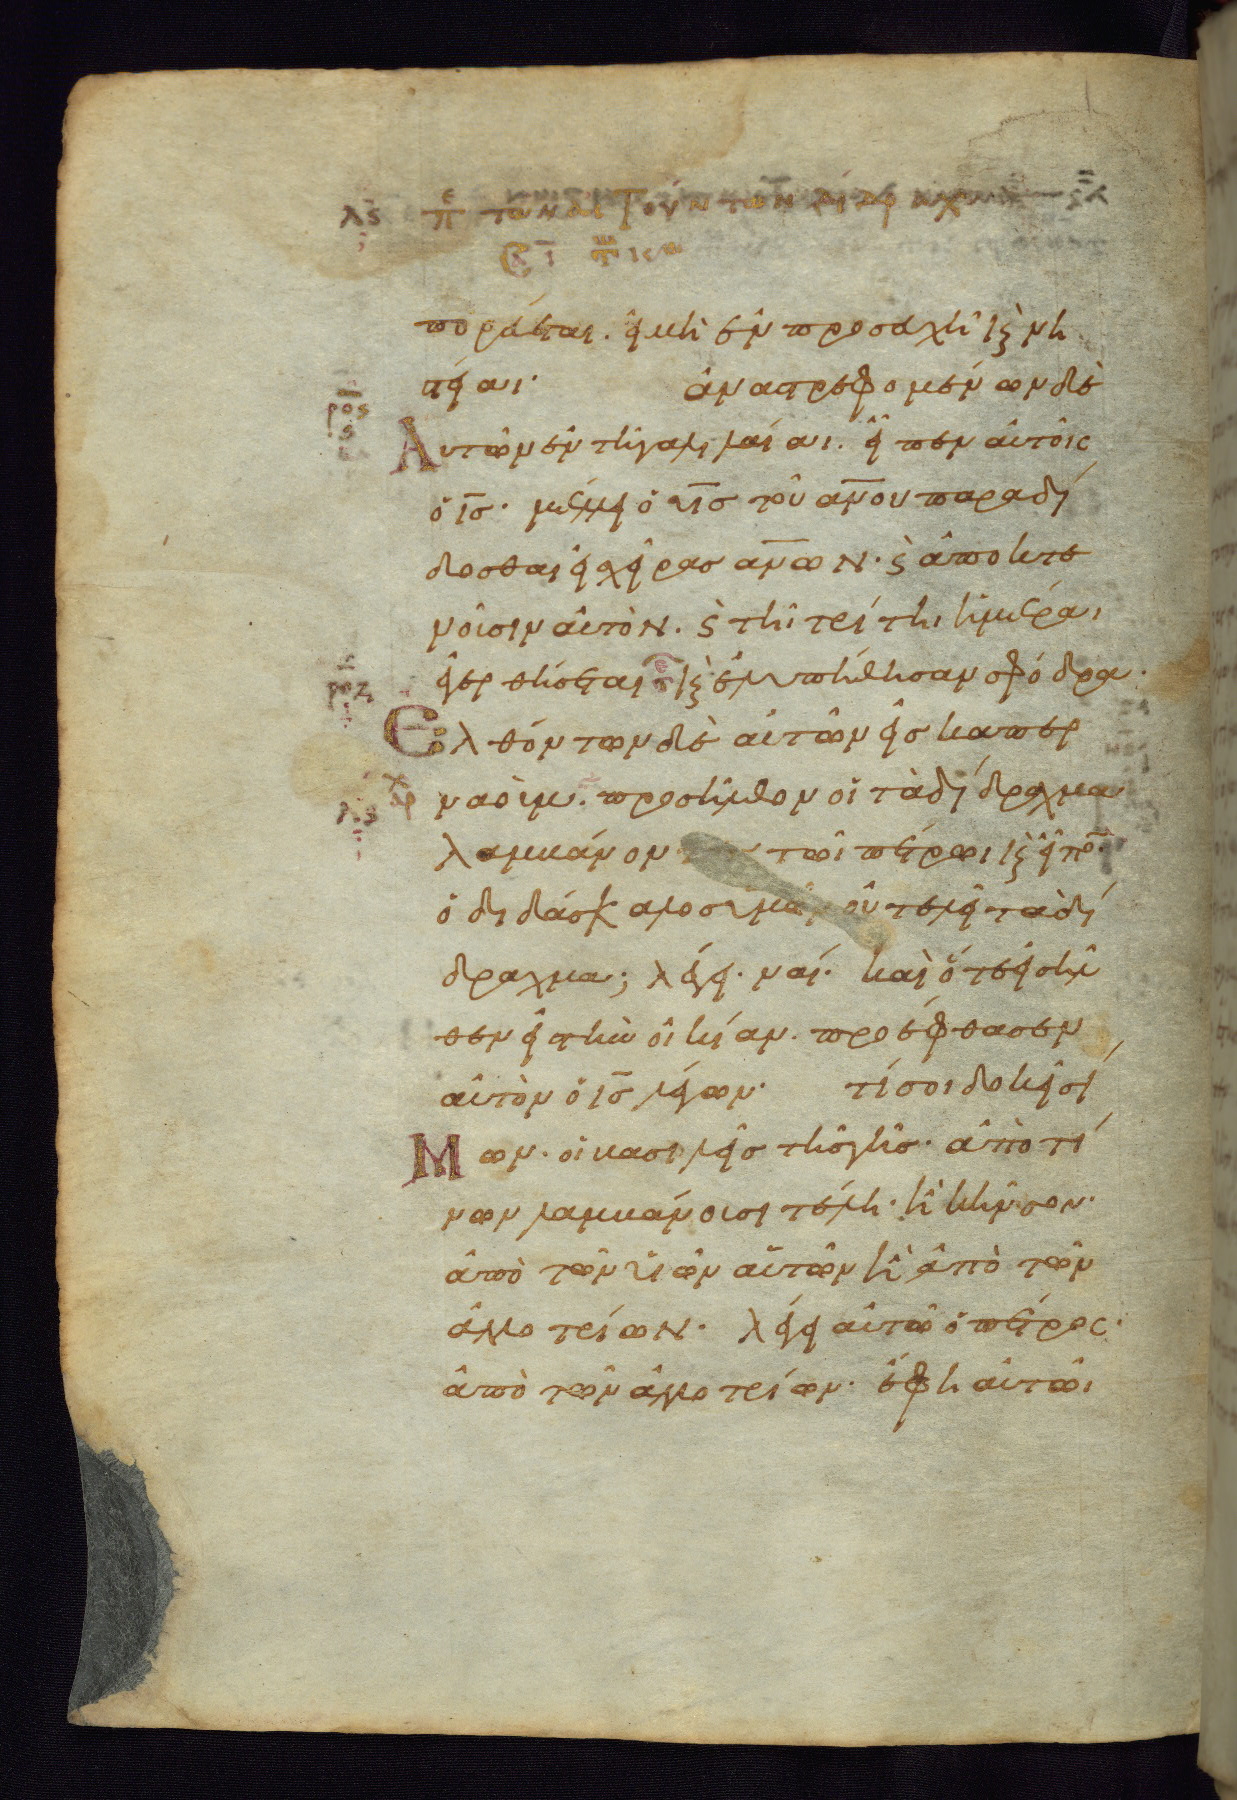 λϛ πε των αιτούντων τὰ δίδραχμα
πορεύεται. εἰ μὴ ἐν προσευχῆι καὶ νη
στείαι· ἀναστρεφομένων δὲ
Αὐτῶν ἐν τῆι γαλιλαίαι. εἶπεν αὐτοῖς
ὁ ι̅ς̅· μέλλει ὁ υ̅ς̅ τοῦ α̅ν̅ο̅υ̅ παραδί
δοσθαι εἰς χεῖρας α̅ν̅ω̅ν̅· καὶ ἀποκτε
νοῦσιν αὐτὸν. καὶ τῆι τρίτηι ἡμέραι
ἐγερθήσεται· καὶ ἐλυπήθησαν σφόδρα·
Ελθόντων δὲ αὐτῶν εἰς καπερ
ναούμ. προσῆλθον οἱ τὰ δίδραχμα
λαμβάνοντες τῶι πέτρωι καὶ εἶπον·
ὁ διδάσκαλος ὑμῶν οὐ τελεῖ τὰ δί
δραχμα; λέγει· ναί· καὶ ὅτε εἰσῆλ
θεν εἰς τὴν οἰκίαν. προέφθασεν
αὐτὸν ὁ ι̅ς̅ λέγων· τί σοι δοκεῖ σί
Μων· οἱ βασιλεῖς τῆς γῆς· ἀπὸ τί
νων λαμβάνουσι τέλη· ἢ κῆνσον·
ἀπὸ τῶν υἱῶν αὐτῶν ἢ ἀπὸ τῶν
ἀλλοτρίων· λέγει αὐτῶ ὁ πέτρος·
ἀπὸ τῶν ἀλλοτρίων· ἔφη αὐτῶι